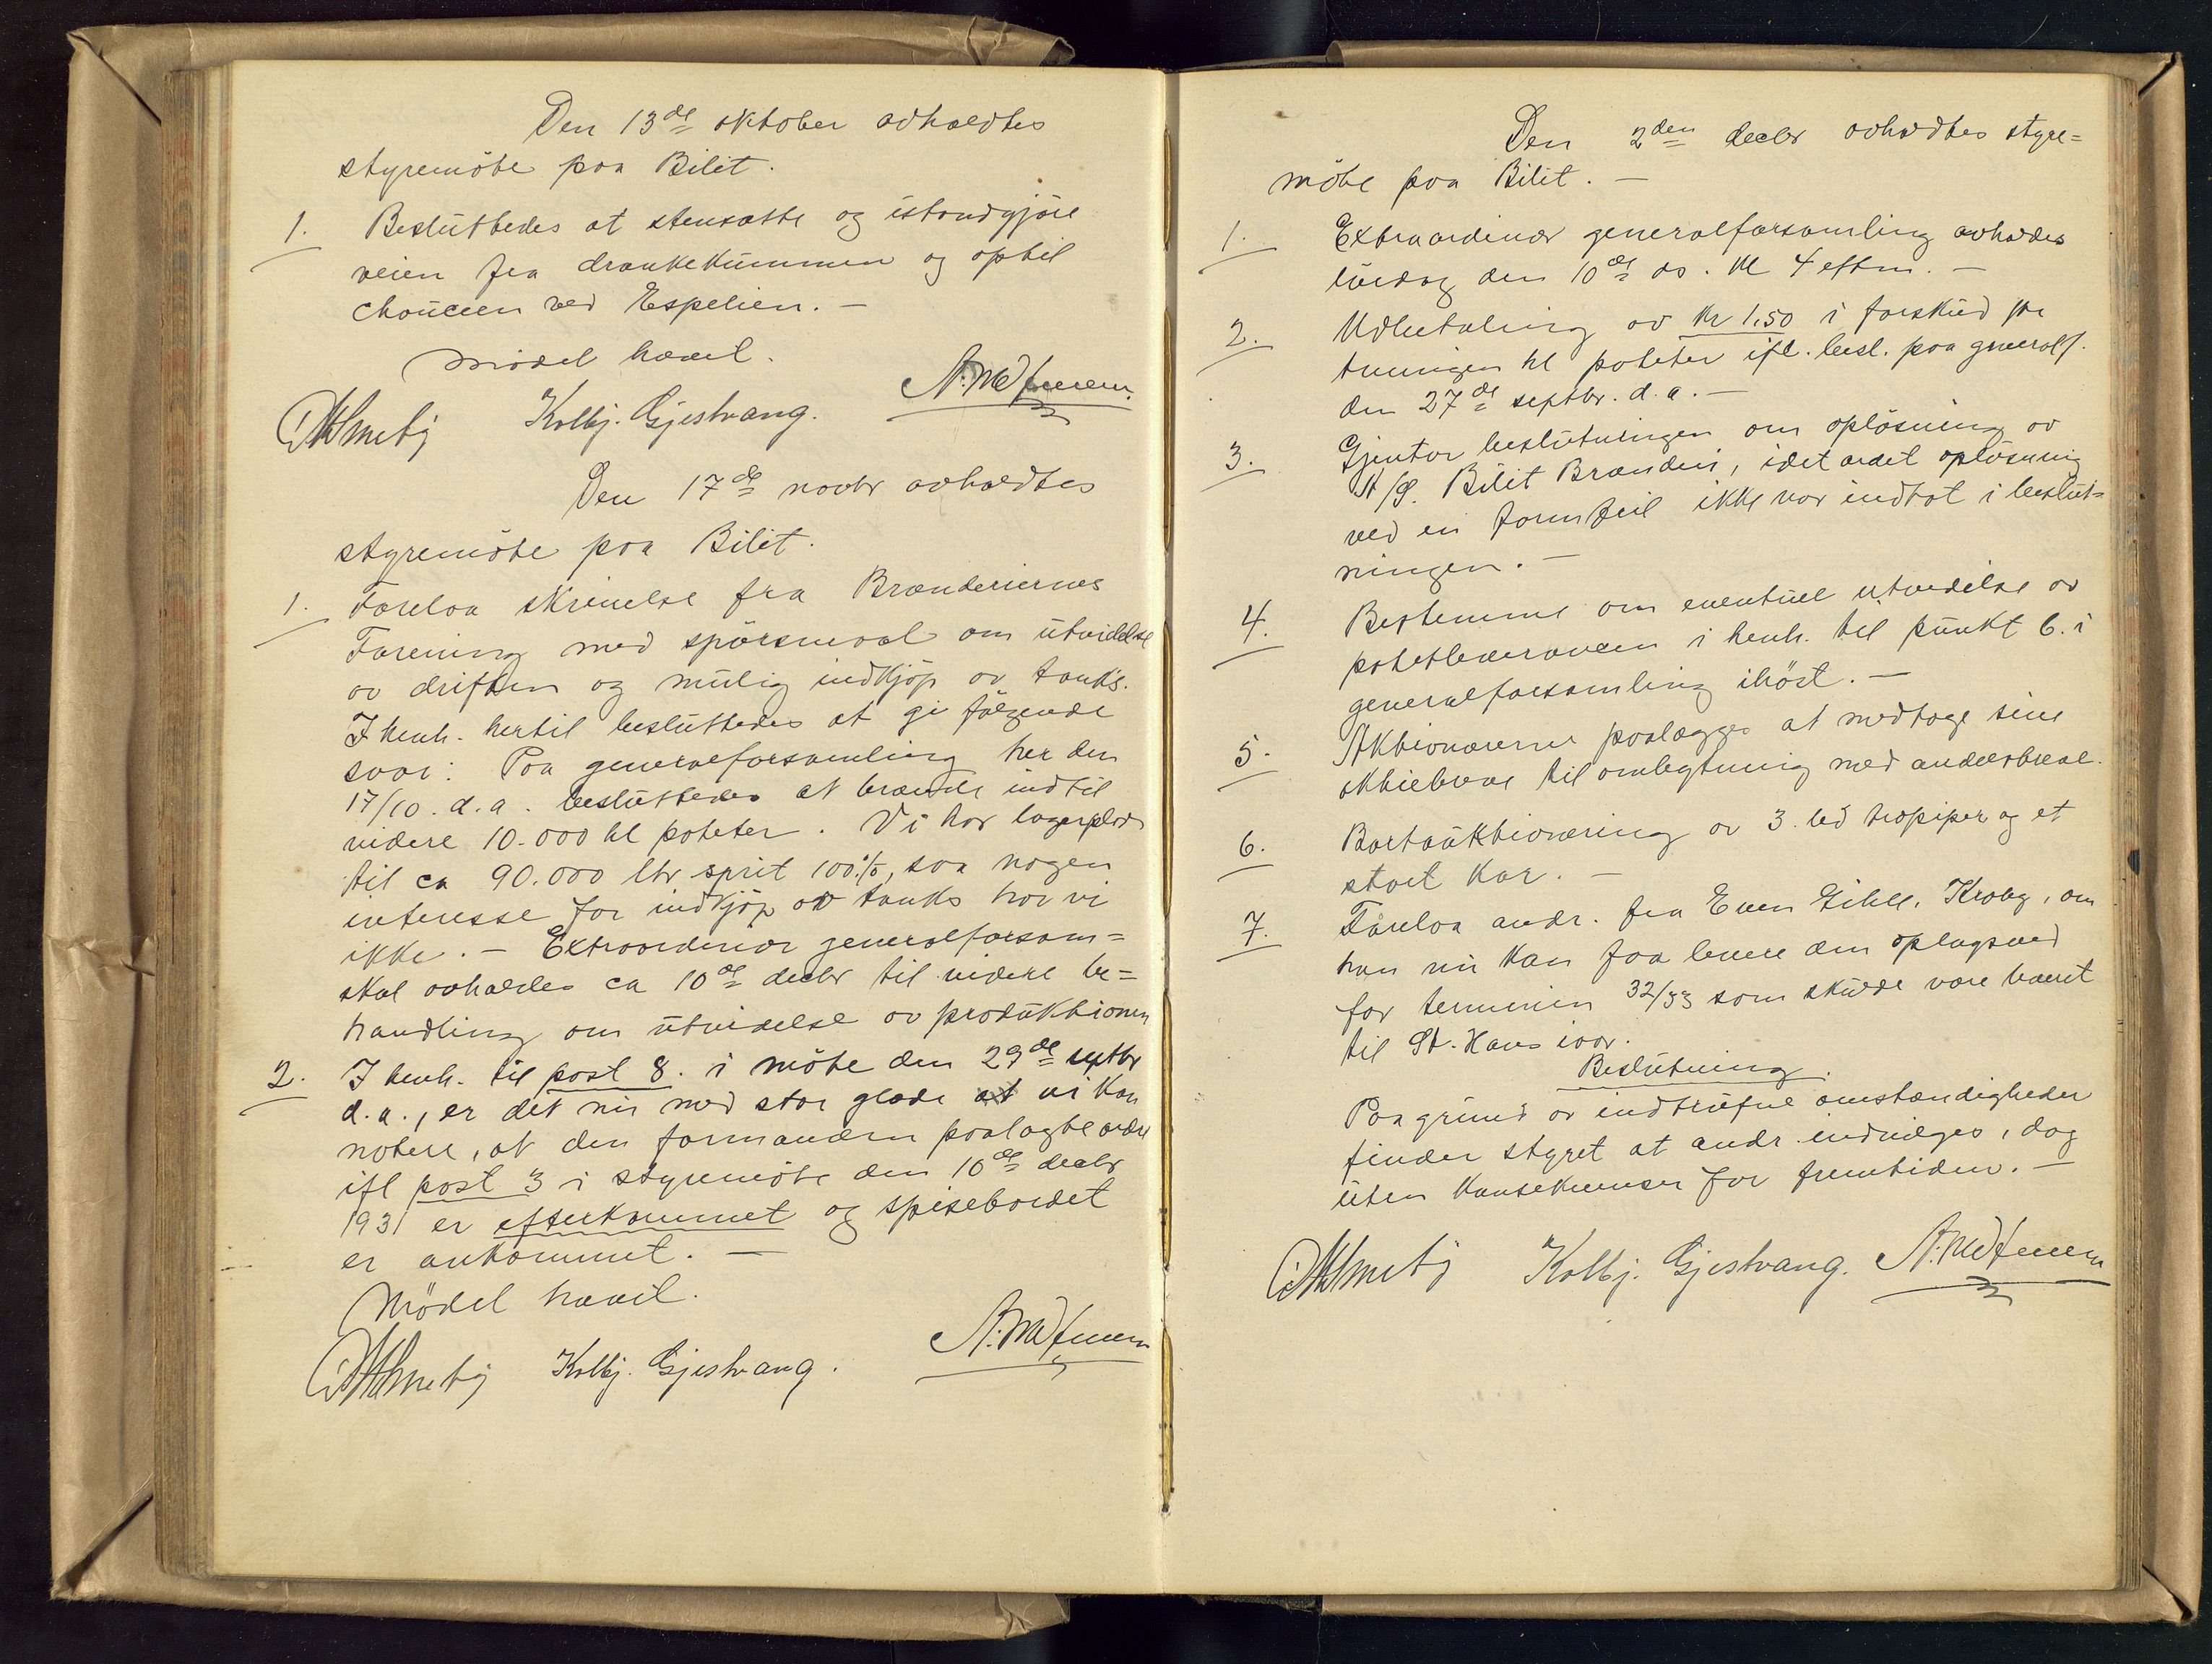 Den 13de oktober avholdtes
styremöte paa Bilit.
1. Besluttedes at stensætte og istandgjöre
veien fra drankekummen og optil
chauceen ved Espelien. —
Mödet hævet.
Kolbj. Gjestvang.
Den 17de novbr avholdtes
styremöte paa Bilit.
1. Forelaa skrivelse fra Brænderiernes
Forening med spörsmaal om utvidelse
av driften og mulig indkjöp av tanks.
I henh. hertil besluttedes at gi fölgende
svar: Paa generalforsamling her den
17/10. d.a. besluttedes at brænde indtil
videre 10.000 hl poteter. Vi har lagerplads
til ca 90.000 ltr sprit 100%, saa nogen
interesse for indkjöp av tanks har vi
ikke. — Extraordinær generalforsam=
skal avholdes ca 10de decbr til videre be=
handling om utvidelse av produktionen
2. I henh. til post 8. i möte den 29de septbr
d.a., er det nu med stor glæde at vi kan
notere, at den formanden paalagte ordre
ifl post 3 i styremöte den 10de decbr
1931 er efterkommet og spisebordet
er ankommet. —
Mödet hævet.
Kolbj. Gjestvang.
Den 2den decbr avholdtes styre=
möte paa Bilit. —
1. Extraordinær generalforsamling avholdes
lördag den 10de ds. kl 4 eftm. —
2. Udbetaling av kr 1,50 i forskud pr
hl poteter ifl. besl. paa generalf.
den 27de septbr. d.a. —
3. Gjentar beslutningen om oplösning av
A/S. Bilit Brænderi, idet ordet oplösning
ved en formfeil ikke var indtat i beslut=
ningen. —
4. Bestemme om eventuel utvidelse av
potetleveransen i henh. til punkt 6. i
generalforsamling ihöst. —
5. Aktionærerne paalægges at medtage sine
aktiebreve til ombytning med andelsbreve.
6. Bortauktionering av 3. led træpiper og et
stort kar. —
7. Forelaa andr. fra Even Eihll, Kraby, om
han nu kan faa levere den oplagsved
for terminen 32/33 som skulde være levert
til St. Hans ivår.
Beslutning.
Paa grund av indtrufne omstændigheder
finder styret at andr. indvilges, dog
uten konsekvenser for fremtiden. —
Kolbj. Gjestvang.